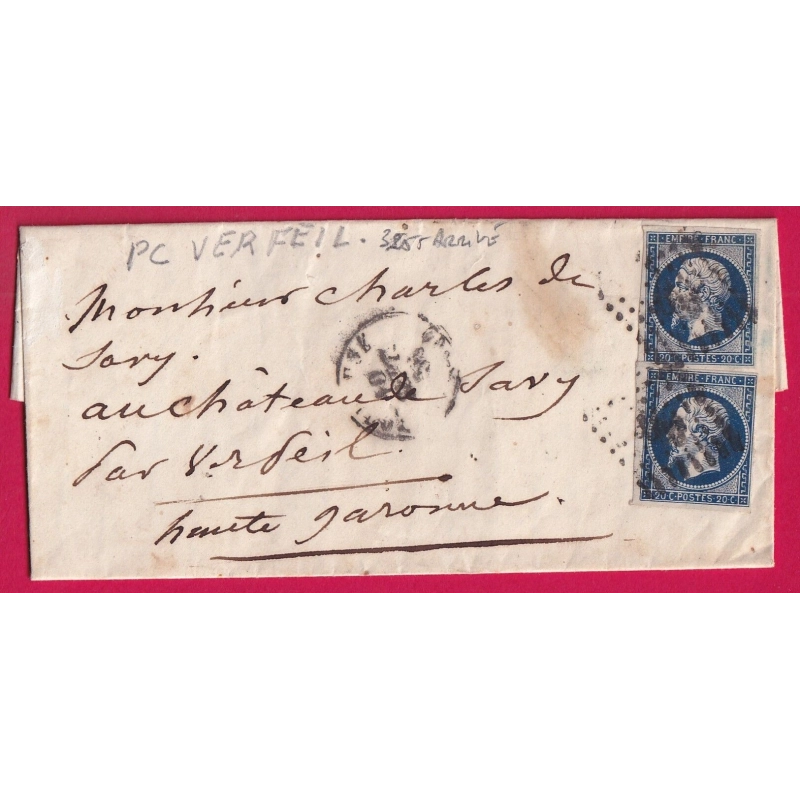 PC VERFEIL. ARRIVÉ
Monsieur Charles de
Savy.
au château de Savy
par Verfeil
haute garonne.
EMPIRE · FRANC
20 C · POSTES · 20 C
EMPIRE · FRANC
20 C · POSTES · 20 C